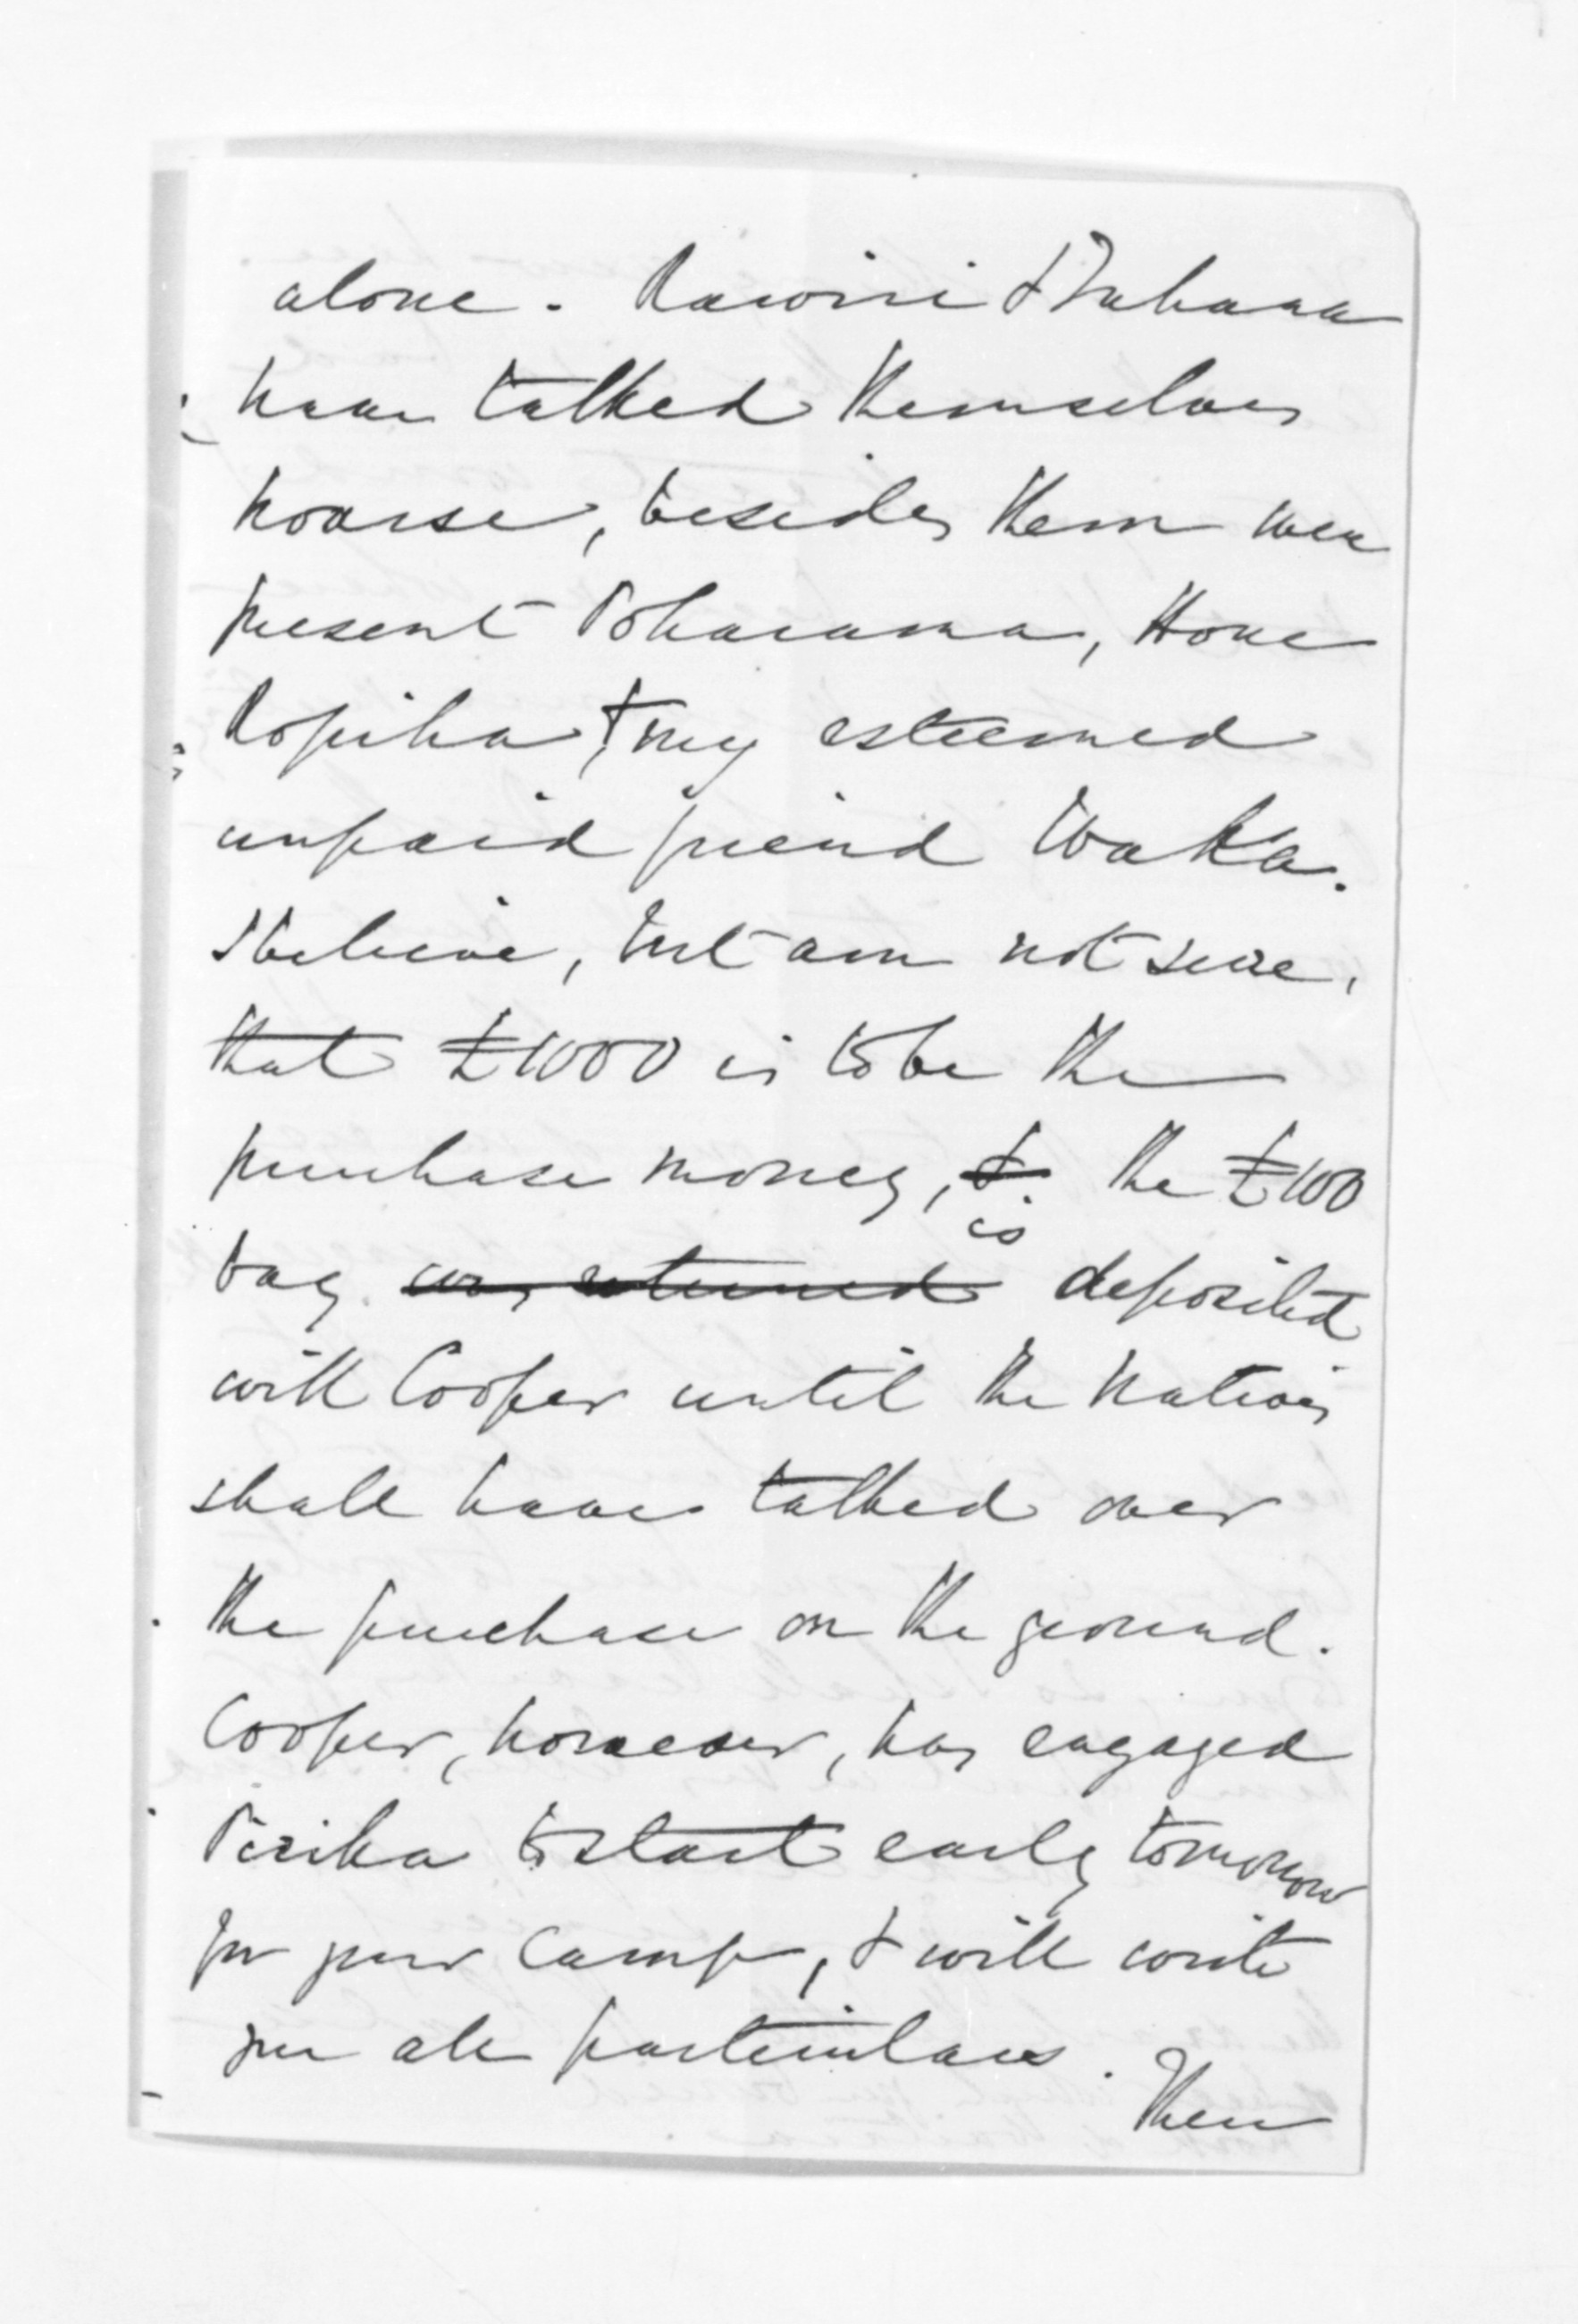 alone. Rawiri & Tahana
have talked themselves
hoarse, besides them were
present Poharama, Hone
Ropiha, & my esteemed
unpaid friend Waka.
I believe, but am not sure,
that £1000 is to be the
purchase money, &. the £100
bag was returned is deposited
with Cooper until the Natives
shall have talked over
the purchase on the ground.
Cooper, however, has engaged
Pirika to start early tomorrow
for your camp, & will write
you all particulars.
Then